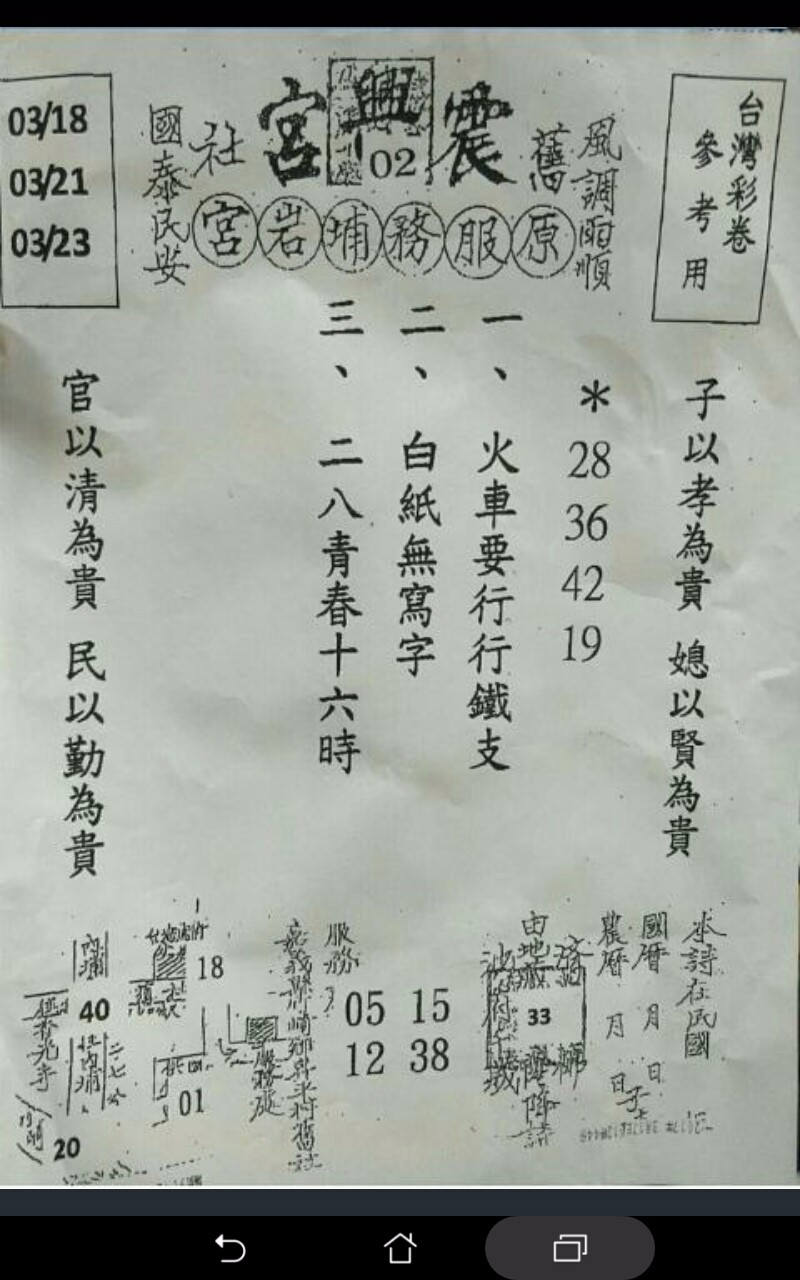 台灣彩卷
參考用
風調雨順
舊
震興宮
02
社
國泰民安
03/18
03/21
03/23
原服務埔岩宮
子以孝為貴 媳以賢為貴
* 28 36 42 19
一、火車要行行鐵支
二、白紙無寫字
三、二八青春十六時
官以清為貴 民以勤為貴
本詩在民國
國曆 月 日
農曆 月 日
33
服務
05 15
12 38
18
40
01
20